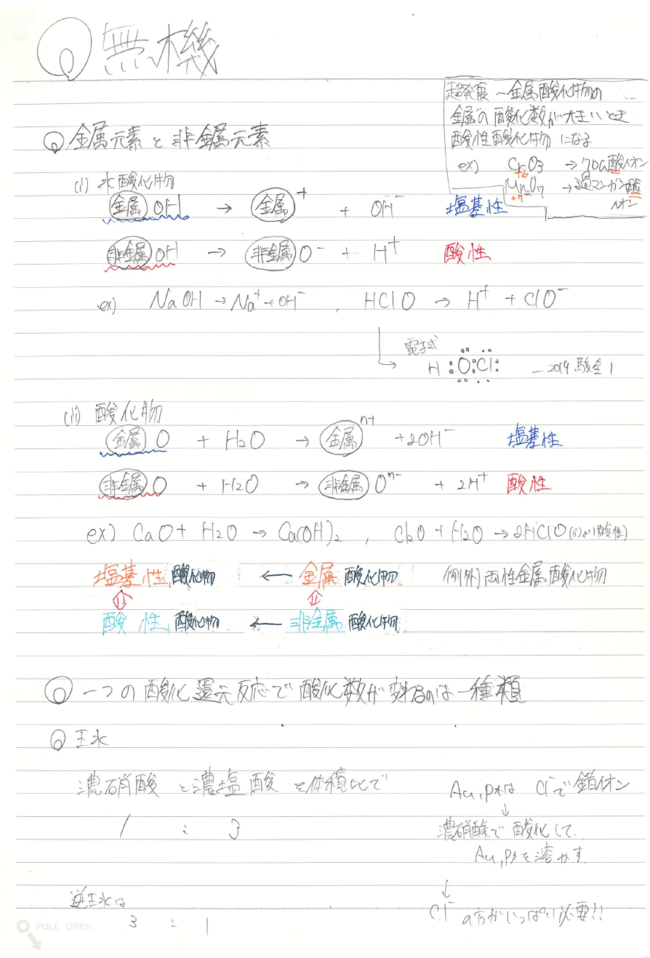 無機
超発展 〜金属酸化物の
金属の酸化数が大きいとき
酸性酸化物になる
ex) CrO3 → クロム酸イオン
+6
Mn2O7 → 過マンガン酸イオン
+7
金属元素と非金属元素
(i) 水酸化物
金属 OH → 金属+ + OH- 塩基性
非金属 OH → 非金属 O- + H+ 酸性
ex) NaOH → Na+ + OH- , HClO → H+ + ClO-
電子式
H:O:Cl: - 2019
(ii) 酸化物
金属 O + H2O → 金属n+ + 2OH- 塩基性
非金属 O + H2O → 非金属 On- + 2H+ 酸性
ex) CaO + H2O → Ca(OH)2 , Cl2O + H2O → 2HClO ((i)より酸性)
塩基性 酸化物 ← 金属 酸化物 (例外) 両性金属酸化物
⇕ ⇕
酸性 酸化物 ← 非金属 酸化物
一つの酸化還元反応で酸化数が変わるのは一種類
王水
濃硝酸と濃塩酸を体積比で
1 : 3
Au, Ptは Cl-で錯イオン
↓
濃硝酸で酸化して
Au, Ptを溶かす
↓
Cl-の方がいっぱい必要!!
逆王水は
3 : 1
PULL OPEN